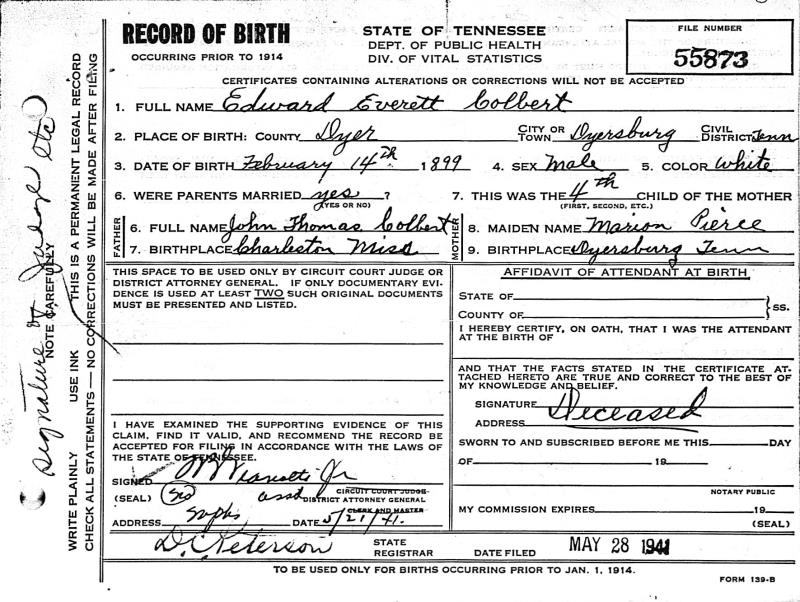 RECORD OF BIRTH
OCCURRING PRIOR TO 1914
STATE OF TENNESSEE
DEPT. OF PUBLIC HEALTH
DIV. OF VITAL STATISTICS
FILE NUMBER
55873
CERTIFICATES CONTAINING ALTERATIONS OR CORRECTIONS WILL NOT BE ACCEPTED
1. FULL NAME Edward Everett Colbert
2. PLACE OF BIRTH: COUNTY Dyer CITY OR TOWN Dyersburg CIVIL DISTRICT Tenn
3. DATE OF BIRTH February 14th 1899 4. SEX Male 5. COLOR White
6. WERE PARENTS MARRIED yes ? 7. THIS WAS THE 4th CHILD OF THE MOTHER
(YES OR NO) (FIRST, SECOND, ETC.)
FATHER 6. FULL NAME John Thomas Colbert MOTHER 8. MAIDEN NAME Marion Pierce
7. BIRTHPLACE Charleston Miss 9. BIRTHPLACE Dyersburg Tenn
THIS SPACE TO BE USED ONLY BY CIRCUIT COURT JUDGE OR
DISTRICT ATTORNEY GENERAL. IF ONLY DOCUMENTARY EVI-
DENCE IS USED AT LEAST TWO SUCH ORIGINAL DOCUMENTS
MUST BE PRESENTED AND LISTED.
I HAVE EXAMINED THE SUPPORTING EVIDENCE OF THIS
CLAIM, FIND IT VALID, AND RECOMMEND THE RECORD BE
ACCEPTED FOR FILING IN ACCORDANCE WITH THE LAWS OF
THE STATE OF TENNESSEE.
SIGNED Jr
CIRCUIT COURT JUDGE
(SEAL) asst DISTRICT ATTORNEY GENERAL
CLERK AND MASTER
ADDRESS DATE 5/21/41.
AFFIDAVIT OF ATTENDANT AT BIRTH
STATE OF
COUNTY OF
SS.
I HEREBY CERTIFY, ON OATH, THAT I WAS THE ATTENDANT
AT THE BIRTH OF
AND THAT THE FACTS STATED IN THE CERTIFICATE AT-
TACHED HERETO ARE TRUE AND CORRECT TO THE BEST OF
MY KNOWLEDGE AND BELIEF.
SIGNATURE Deceased
ADDRESS
SWORN TO AND SUBSCRIBED BEFORE ME THIS DAY
OF 19
NOTARY PUBLIC
MY COMMISSION EXPIRES 19
(SEAL)
D. C. Peterson STATE REGISTRAR DATE FILED MAY 28 1941
TO BE USED ONLY FOR BIRTHS OCCURRING PRIOR TO JAN. 1, 1914.
FORM 139-B
WRITE PLAINLY USE INK THIS IS A PERMANENT LEGAL RECORD
CHECK ALL STATEMENTS — NO CORRECTIONS WILL BE MADE AFTER FILING
NOTE CAREFULLY
Signature of Judge etc